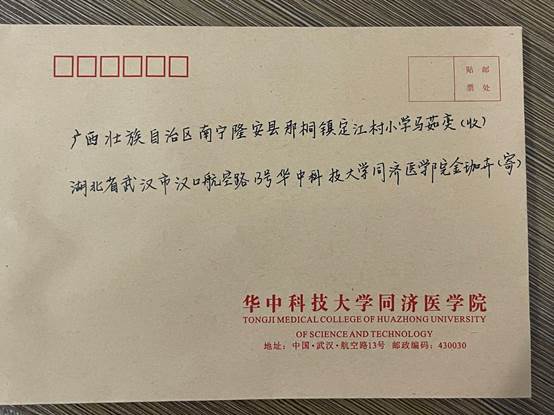 贴 邮
票 处
广西壮族自治区南宁隆安县那桐镇定江村小学马茹奕(收)
湖北省武汉市汉口航空路13号华中科技大学同济医学院金珈卉(寄)
华中科技大学同济医学院
TONGJI MEDICAL COLLEGE OF HUAZHONG UNIVERSITY
OF SCIENCE AND TECHNOLOGY
地址：中国·武汉·航空路13号 邮政编码：430030